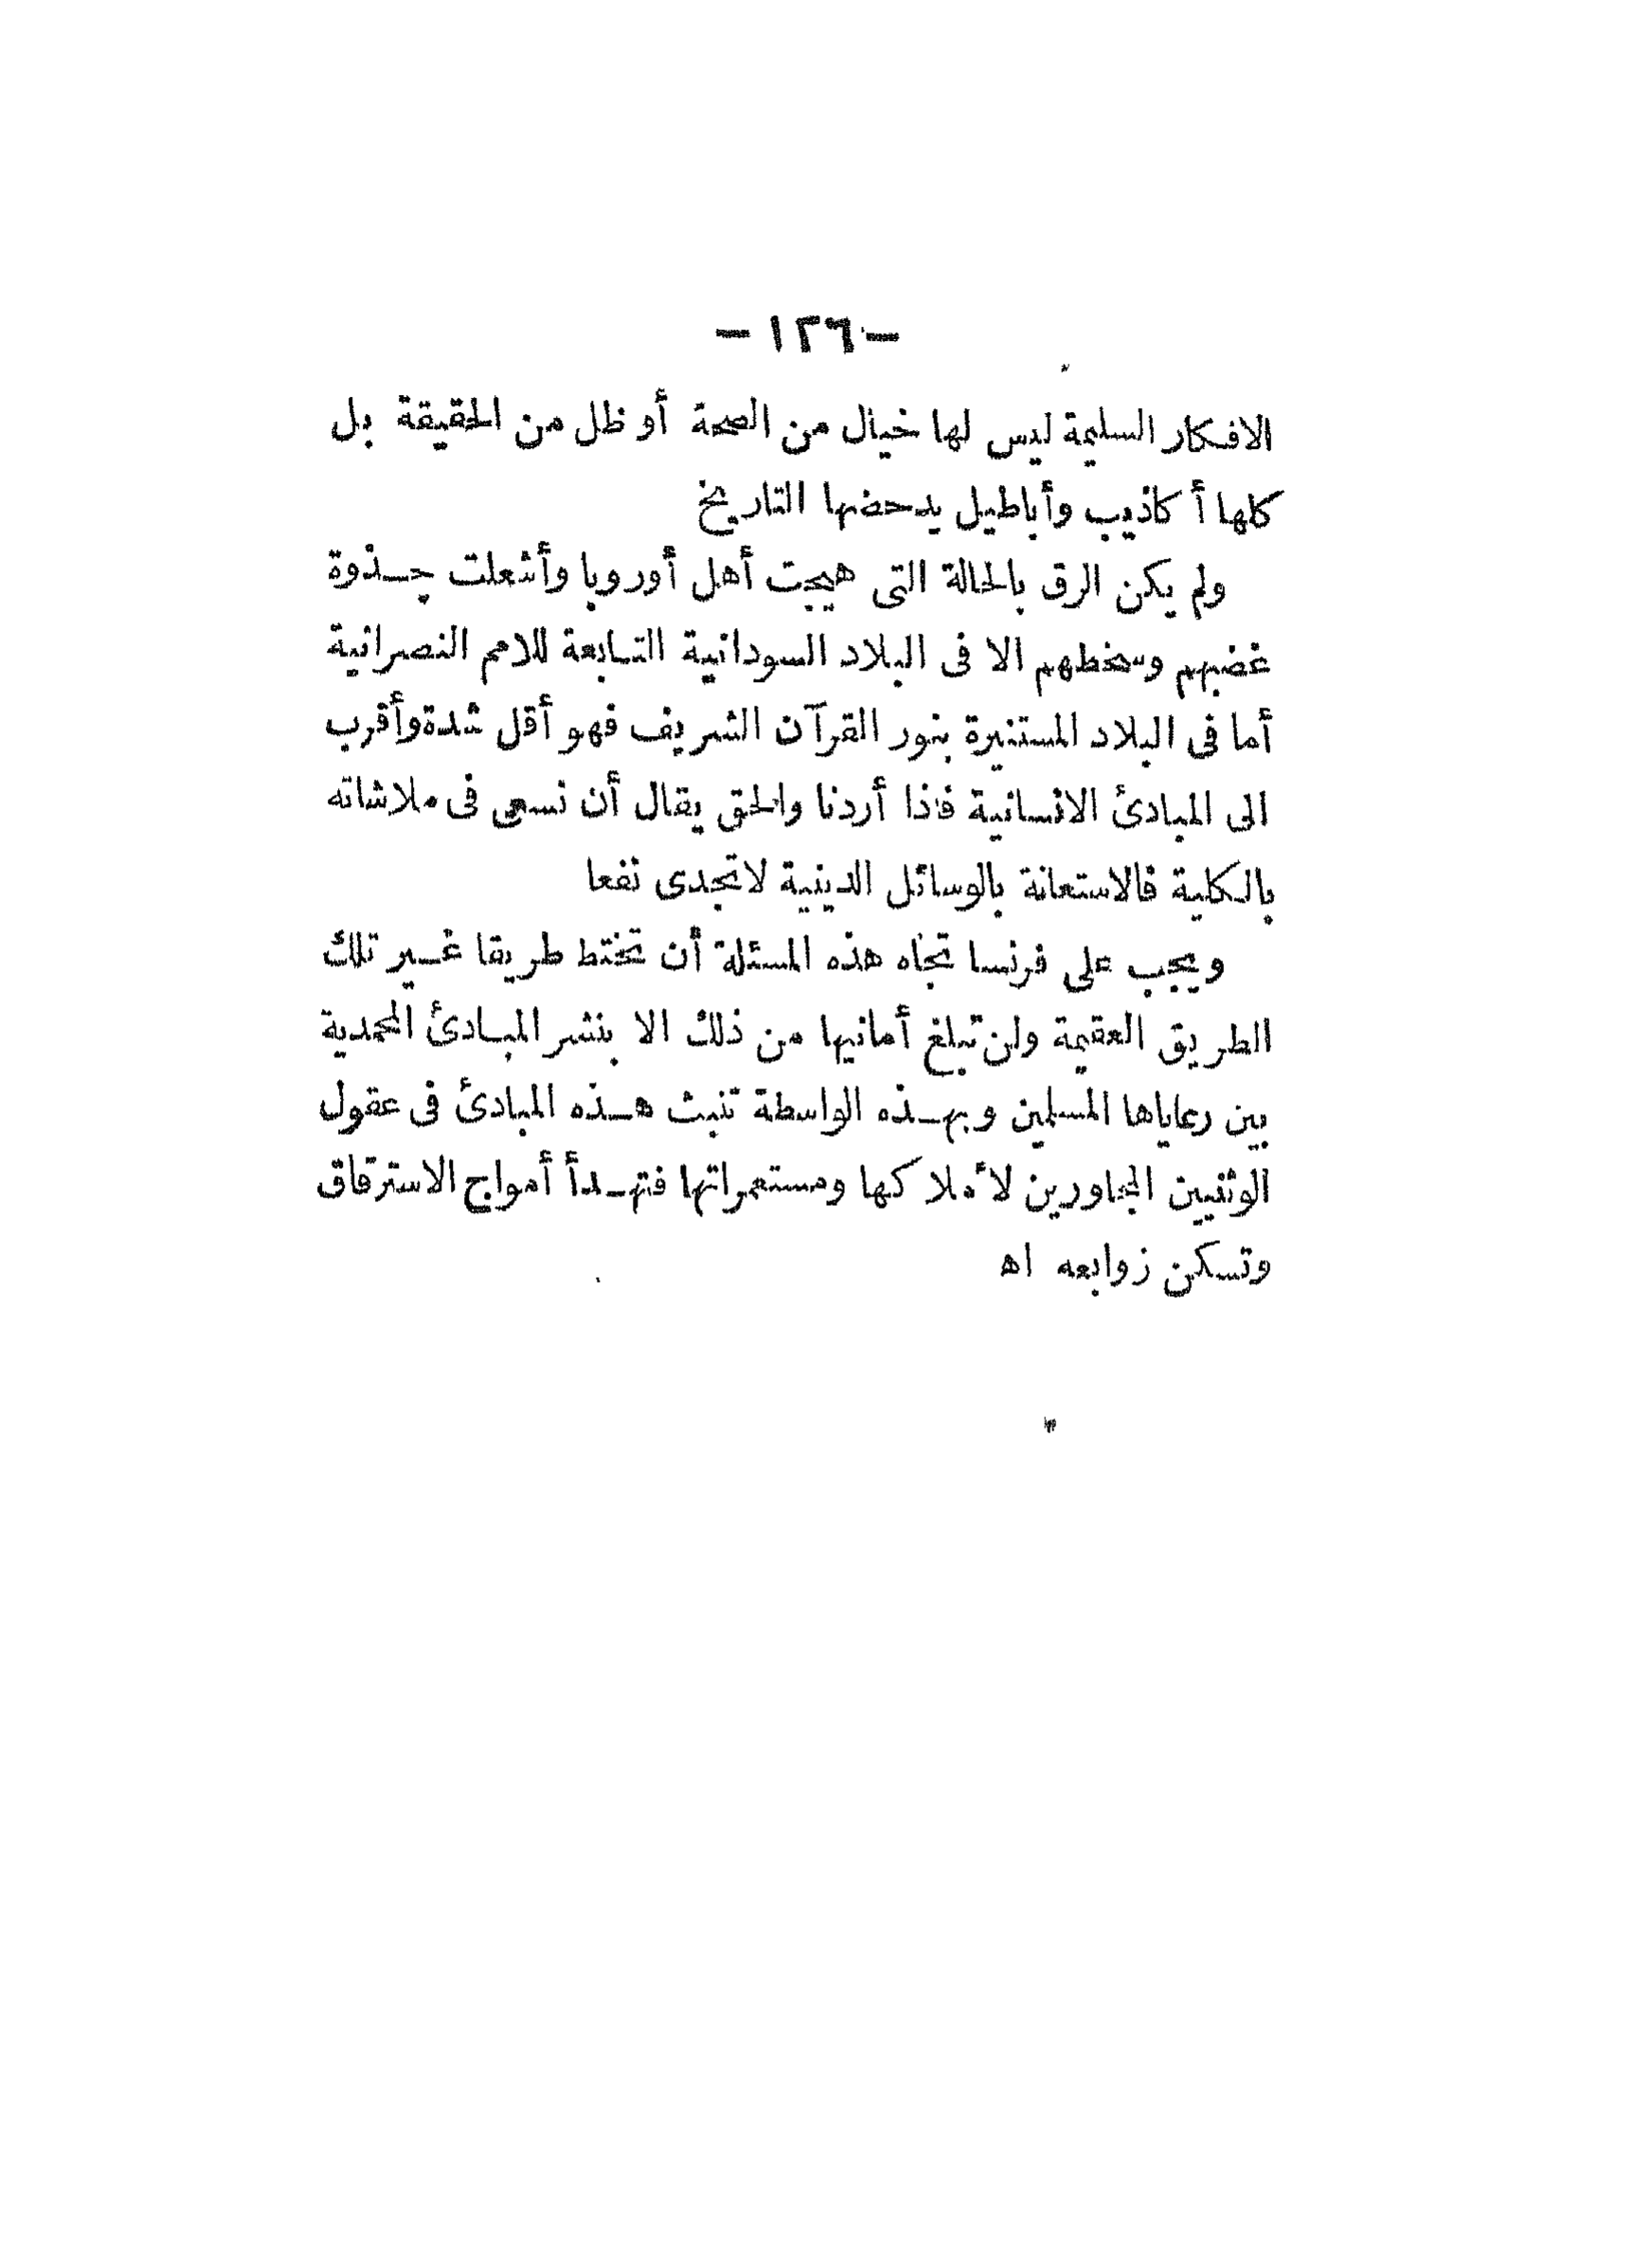 - ١٢٦ -
الافكار السليمة ليس لها خيال من الصحة أو ظل من الحقيقة بل
كلها أكاذيب وأباطيل يدحضها التاريخ
ولم يكن الرق بالحالة التى هيجت أهل أوروبا وأشعلت جذوة
غضبهم وسخطهم الا فى البلاد السودانية التابعة للامم النصرانية
أما فى البلاد المستنيرة بنور القرآن الشريف فهو أقل شدة وأقرب
الى المبادئ الانسانية فاذا أردنا والحق يقال أن نسعى فى ملاشاته
بالكلية فالاستعانة بالوسائل الدينية لاتجدى نفعا
ويجب على فرنسا تجاه هذه المسئلة أن تختط طريقا غير تلك
الطريق العقيمة ولن تبلغ أمانيها من ذلك الا بنشر المبادئ المحمدية
بين رعاياها المسلمين وبهذه الواسطة تنبث هذه المبادئ فى عقول
الوثنيين المجاورين لأملاكها ومستعمراتها فتهدأ أمواج الاسترقاق
وتسكن زوابعه اه